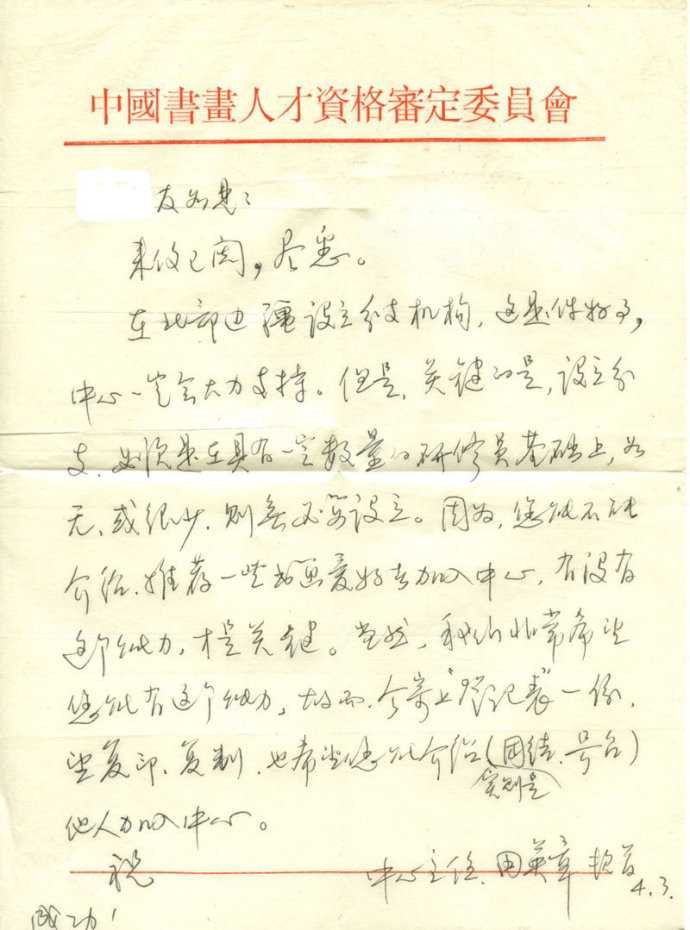 中國書畫人才資格審定委員會
友如見：
来信已阅，尽悉。
在北部边疆设立分支机构，这是件好事，
中心一定会大力支持。但是，关键的是，设立分
支，必须是在具有一定数量的研修员基础上，如
无、或很少，则无必要设立。因为，您能不能
介绍、推荐一些书画爱好者加入中心，有没有
这个能力，才是关键。当然，我们非常希望
您能有这个能力，故而，今寄上“登记表”一份，
望复印、复制，也希望您能介绍（团结、号召）
实则是
他人加入中心。
祝
中心主任 田英章 顿首
4.3.
成功！